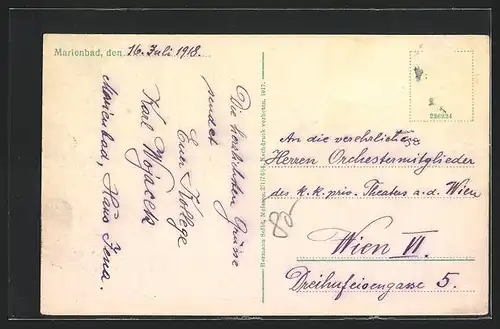 Marienbad, den 16. Juli 1918.
Die herzlichsten Grüsse
sendet
Euer Kollege
Karl Wojacek
Marienbad, Haus Jena.
Hermann Seibt, Meissen 1917. Nachdruck verboten.
226224
An die verehrlichen
Herren Orchestermitglieder
des k. k. priv. Theaters a. d. Wien
Wien VI.
Dreihufeisengasse 5.